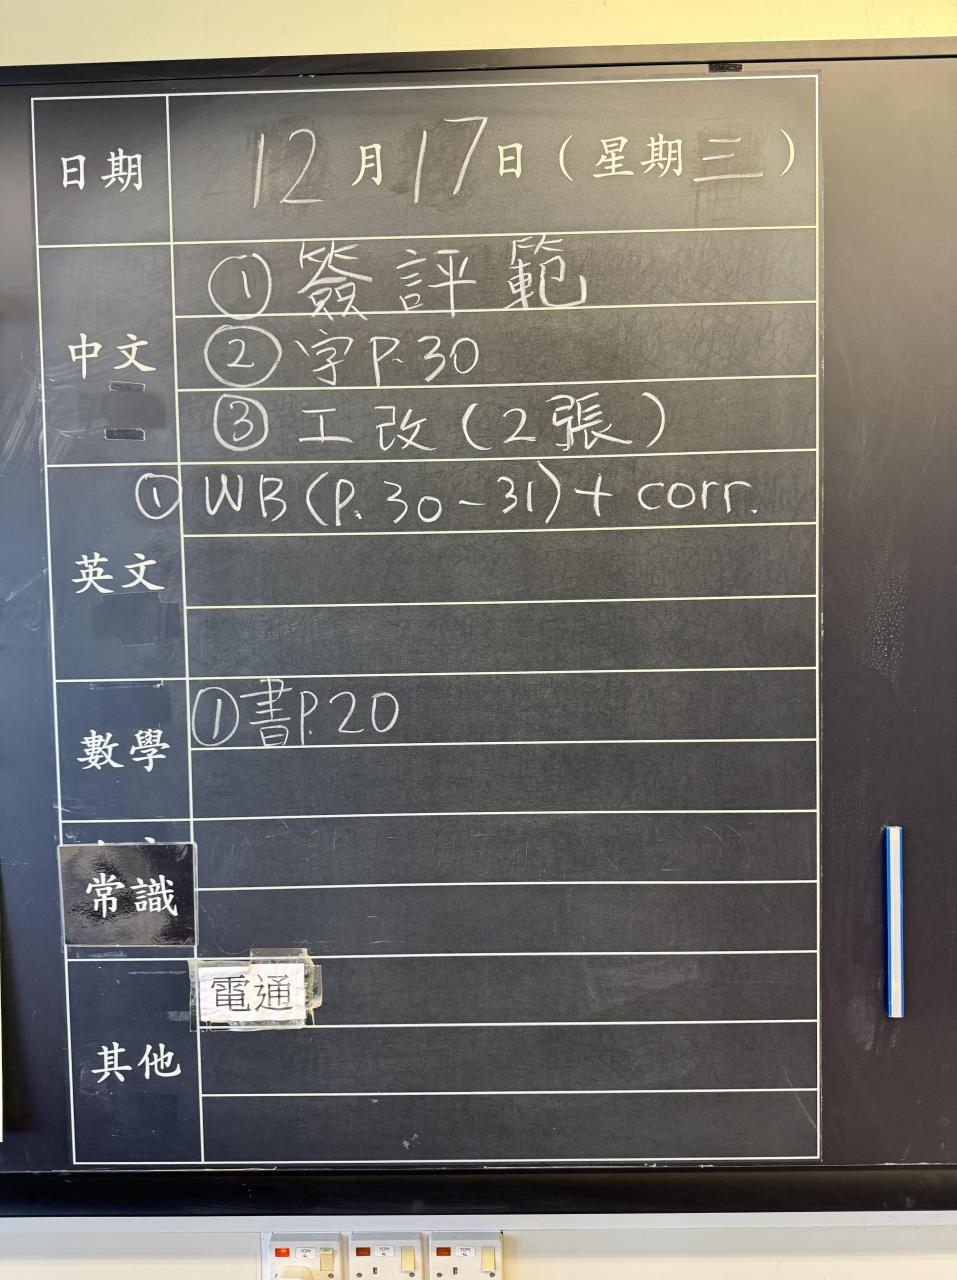 日期 12月17日（星期三）
中文
① 簽評範
② 字P.30
③ 工改（2張）
英文
① WB (P. 30-31) + corr.
數學
① 書P.20
常識
其他
電通